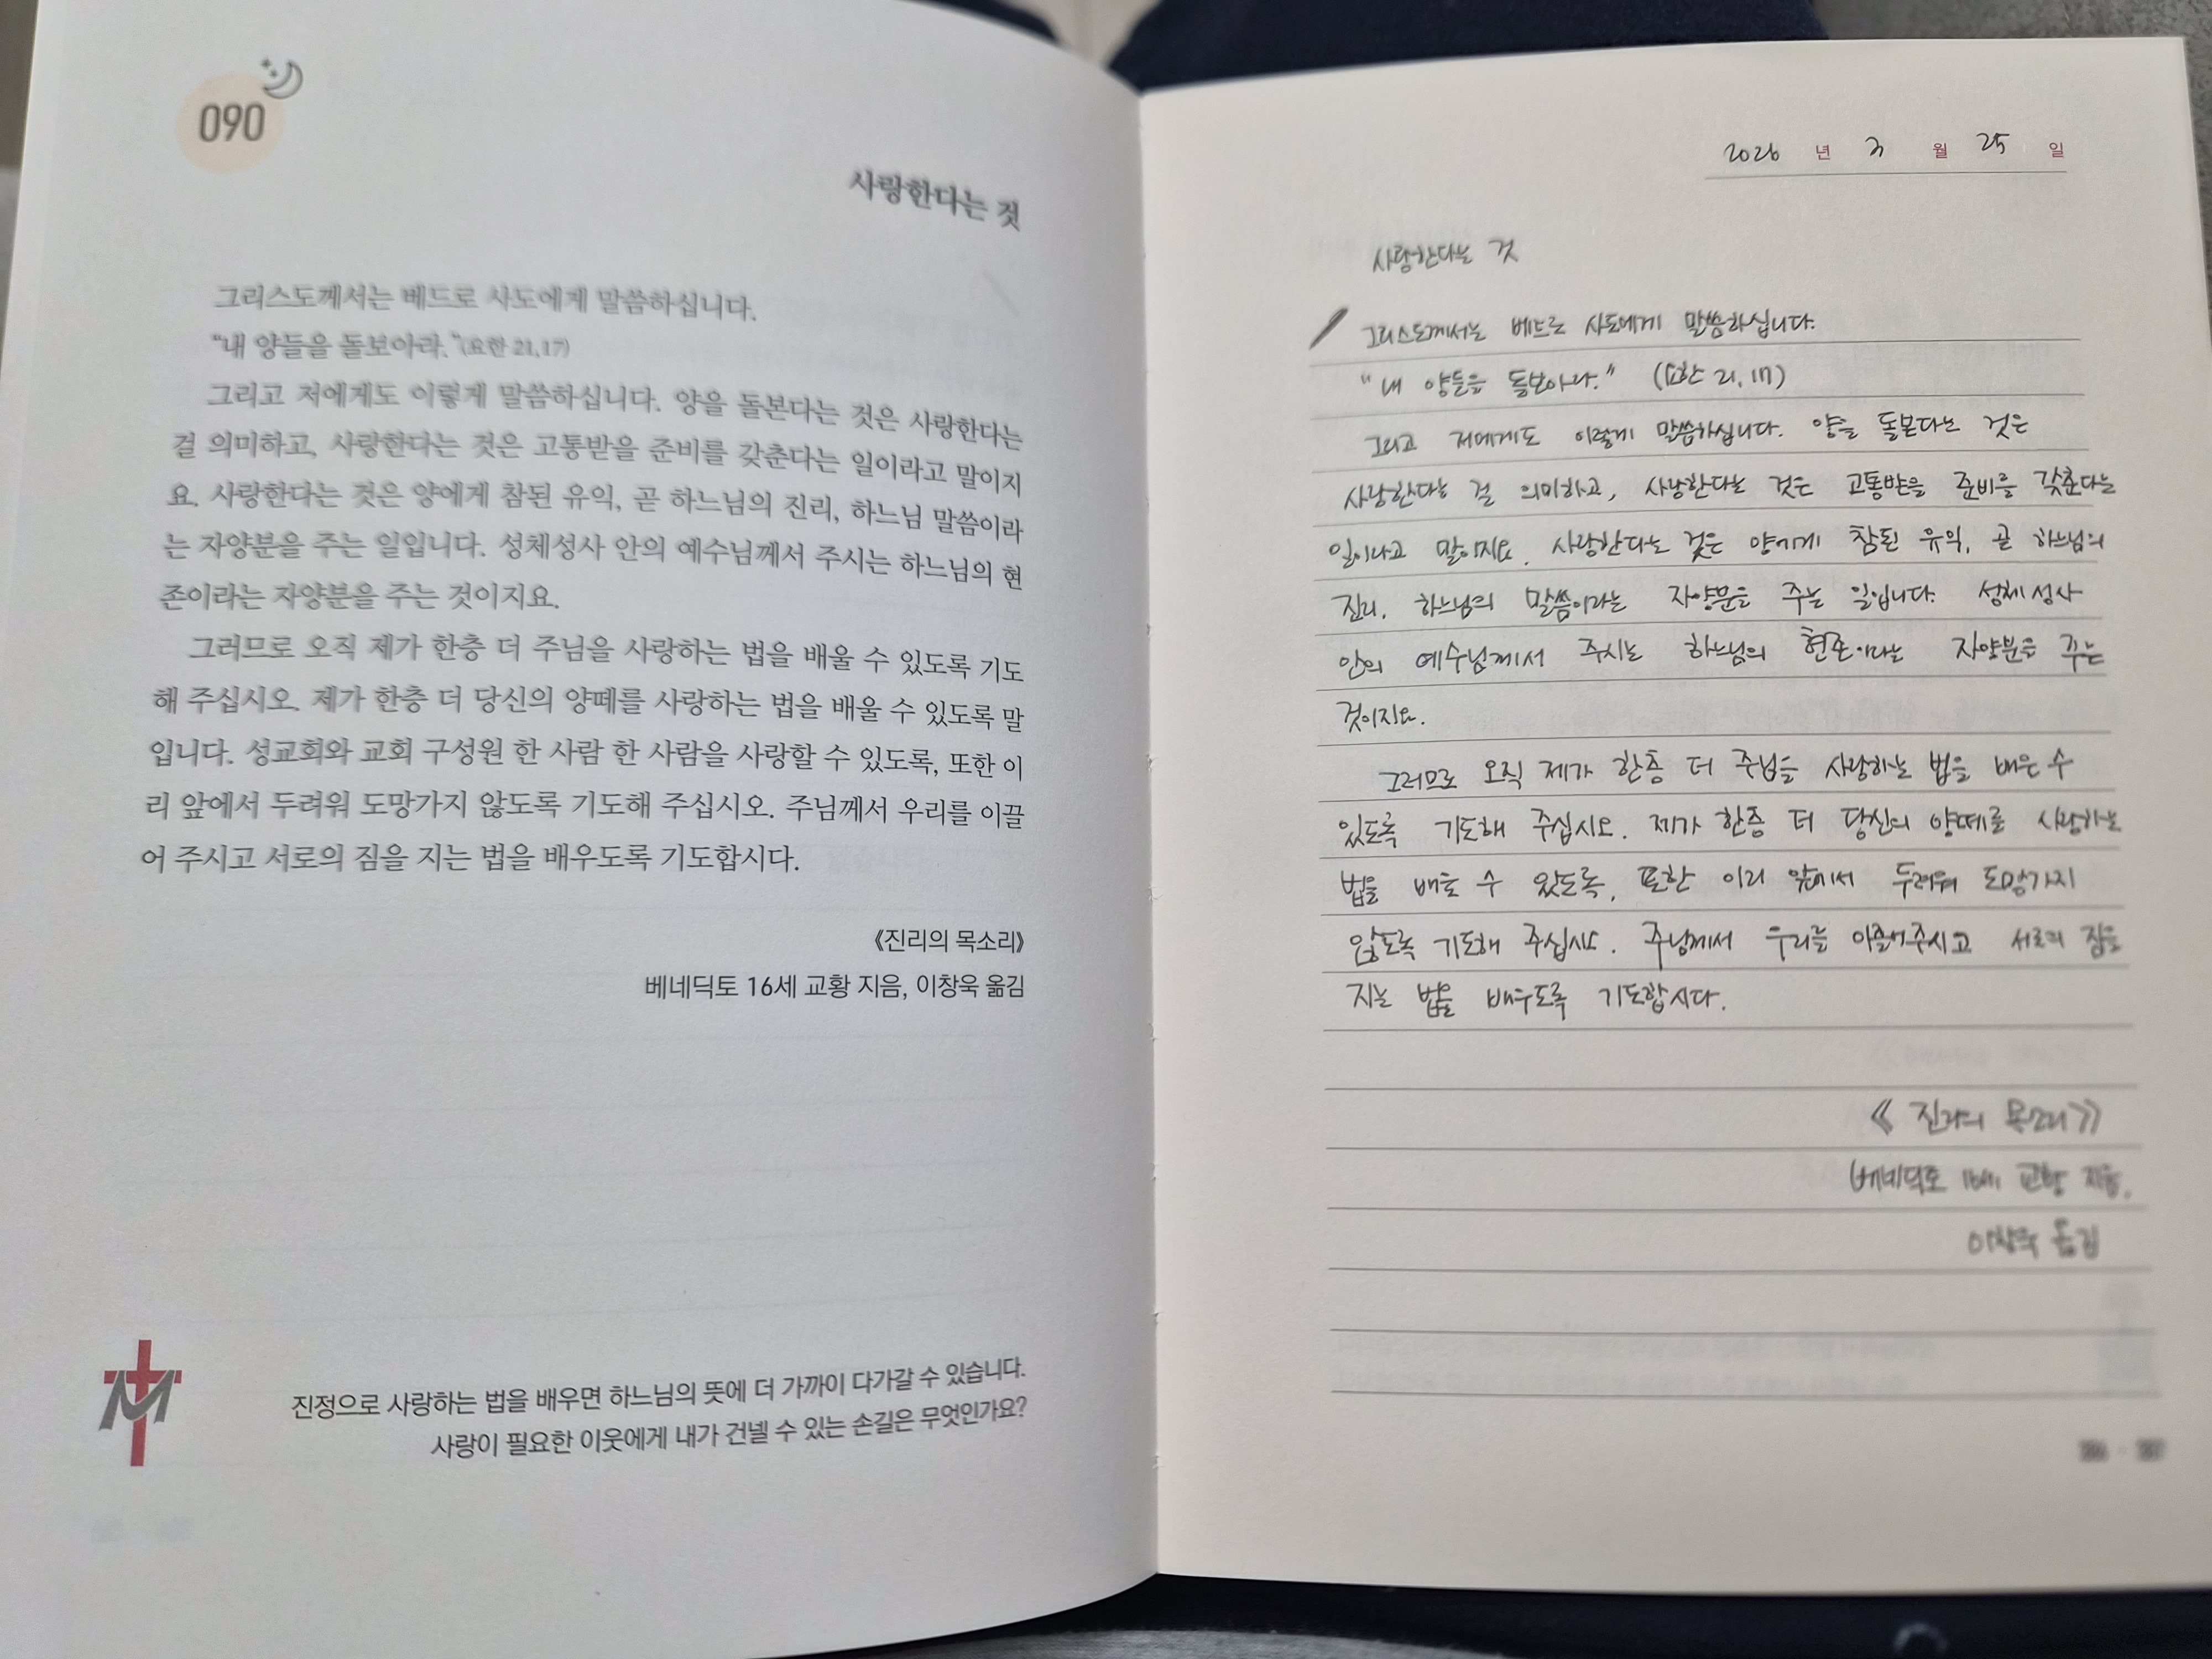 090
사랑한다는 것
그리스도께서는 베드로 사도에게 말씀하십니다.
“내 양들을 돌보아라.”(요한 21,17)
그리고 저에게도 이렇게 말씀하십니다. 양을 돌본다는 것은 사랑한다는
걸 의미하고, 사랑한다는 것은 고통받을 준비를 갖춘다는 일이라고 말이지
요. 사랑한다는 것은 양에게 참된 유익, 곧 하느님의 진리, 하느님 말씀이라
는 자양분을 주는 일입니다. 성체성사 안의 예수님께서 주시는 하느님의 현
존이라는 자양분을 주는 것이지요.
그러므로 오직 제가 한층 더 주님을 사랑하는 법을 배울 수 있도록 기도
해 주십시오. 제가 한층 더 당신의 양떼를 사랑하는 법을 배울 수 있도록 말
입니다. 성교회와 교회 구성원 한 사람 한 사람을 사랑할 수 있도록, 또한 이
리 앞에서 두려워 도망가지 않도록 기도해 주십시오. 주님께서 우리를 이끌
어 주시고 서로의 짐을 지는 법을 배우도록 기도합시다.
《진리의 목소리》
베네딕토 16세 교황 지음, 이창욱 옮김
진정으로 사랑하는 법을 배우면 하느님의 뜻에 더 가까이 다가갈 수 있습니다.
사랑이 필요한 이웃에게 내가 건넬 수 있는 손길은 무엇인가요?
2026 년 3 월 25 일
사랑한다는 것
그리스도께서는 베드로 사도에게 말씀하십니다.
“내 양들을 돌보아라.” (요한 21, 17)
그리고 저에게도 이렇게 말씀하십니다. 양을 돌본다는 것은
사랑한다는 걸 의미하고, 사랑한다는 것은 고통받을 준비를 갖춘다는
일이라고 말이지요. 사랑한다는 것은 양에게 참된 유익, 곧 하느님의
진리, 하느님의 말씀이라는 자양분을 주는 일입니다. 성체성사
안의 예수님께서 주시는 하느님의 현존이라는 자양분을 주는
것이지요.
그러므로 오직 제가 한층 더 주님을 사랑하는 법을 배울 수
있도록 기도해 주십시오. 제가 한층 더 당신의 양떼를 사랑하는
법을 배울 수 있도록, 또한 이리 앞에서 두려워 도망가지
않도록 기도해 주십시오. 주님께서 우리를 이끌어주시고 서로의 짐을
지는 법을 배우도록 기도합시다.
《진리의 목소리》
베네딕토 16세 교황 지음,
이창욱 옮김